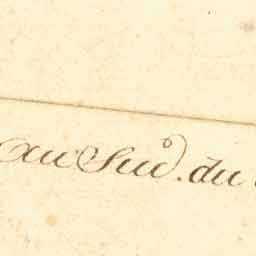 au Sud. du